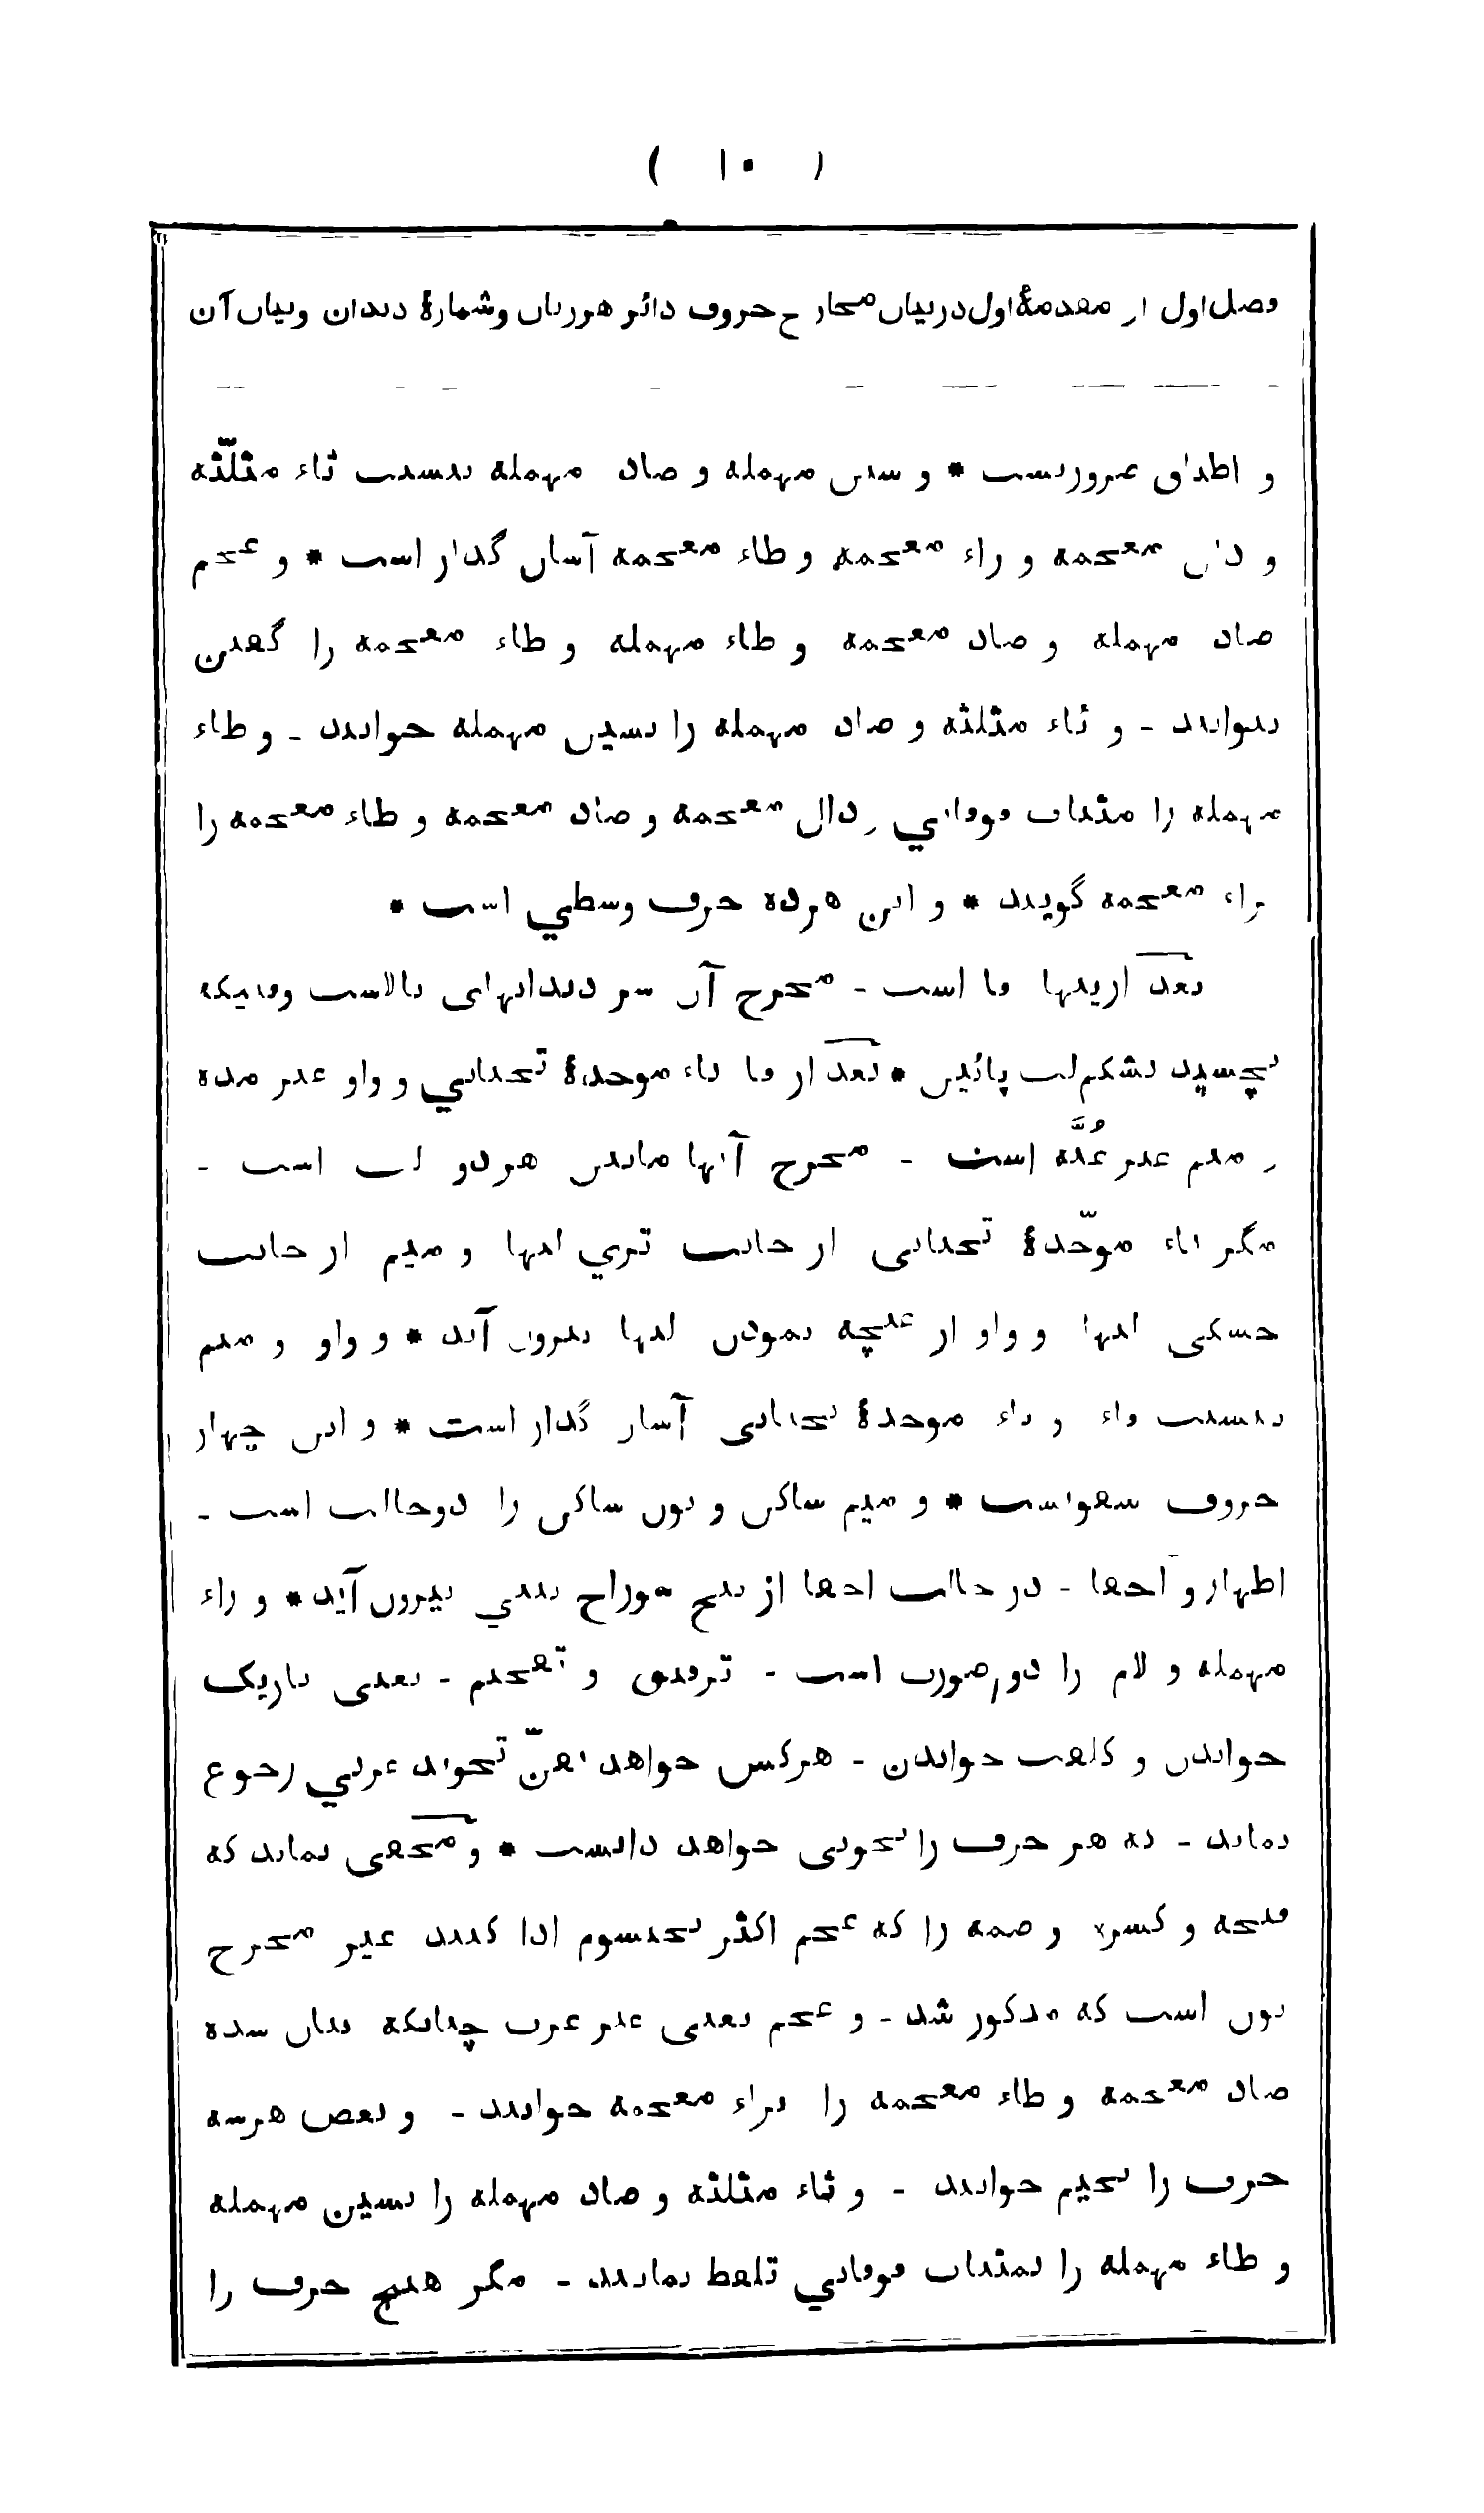 ( ۱۰ )
فصل اول از مقدمهٔ اول در بیان مخارج حروف دائر هر زبان و شمارهٔ دندان و بیان آن
و اطباق ضروریست * و سین مهمله و صاد مهمله بنسبت ثاء مثلّثه
و ذال معجمه و زاء معجمه و ظاء معجمه آسان گذار است * و عجم
صاد مهمله و ضاد معجمه و طاء مهمله و ظاء معجمه را گفتن
نتوانند - و ثاء مثلثه و صاد مهمله را بسین مهمله خوانند - و طاء
مهمله را بمثناب فوقاني و ذال معجمه و ضاد معجمه و ظاء معجمه را
بزاء معجمه گویند * و این هژده حرف وسطي است *
بعد ازینها فا است - مخرج آن سر دندانهای بالاست وقتیکه
بچسپد بشکم لب پائین * بعد از فا باء موحدهٔ تحتاني و واو غیر مده
و میم غیر غُنَّه است - مخرج آنها مابین هر دو لب است -
مگر باء موحّدهٔ تحتانی از جانب تري لبها و میم از جانب
خشکی لبها و واو از غنچه نمودن لبها بیرون آید * و واو و میم
بنسبت فاء و باء موحدهٔ تحتانی آسان گذار است * و این چهار
حروف شفویست * و میم ساکن و نون ساکن را دو حالت است -
اظهار و اخفا - در حالت اخفا از بیخ سوراخ بیني بیرون آید * و راء
مهمله و لام را دو صورت است - ترقیق و تفخیم - یعنی باریک
خواندن و کلفت خواندن - هرکس خواهد بفنّ تجوید عربي رجوع
نماید - که هر حرف را بخوبی خواهد دانست * و مخفی نماند که
فتحه و کسره و ضمه را که عجم اکثر بخیشوم ادا کنند غیر مخرج
نون است که مذکور شد - و عجم یعنی غیر عرب چنانکه بیان شده
ضاد معجمه و ظاء معجمه را بزاء معجمه خوانند - و بعض هرسه
حرف را بجیم خوانند - و ثاء مثلثه و صاد مهمله را بسین مهمله
و طاء مهمله را بمثناب فوقاني تلفظ نمایند - مگر هیچ حرف را